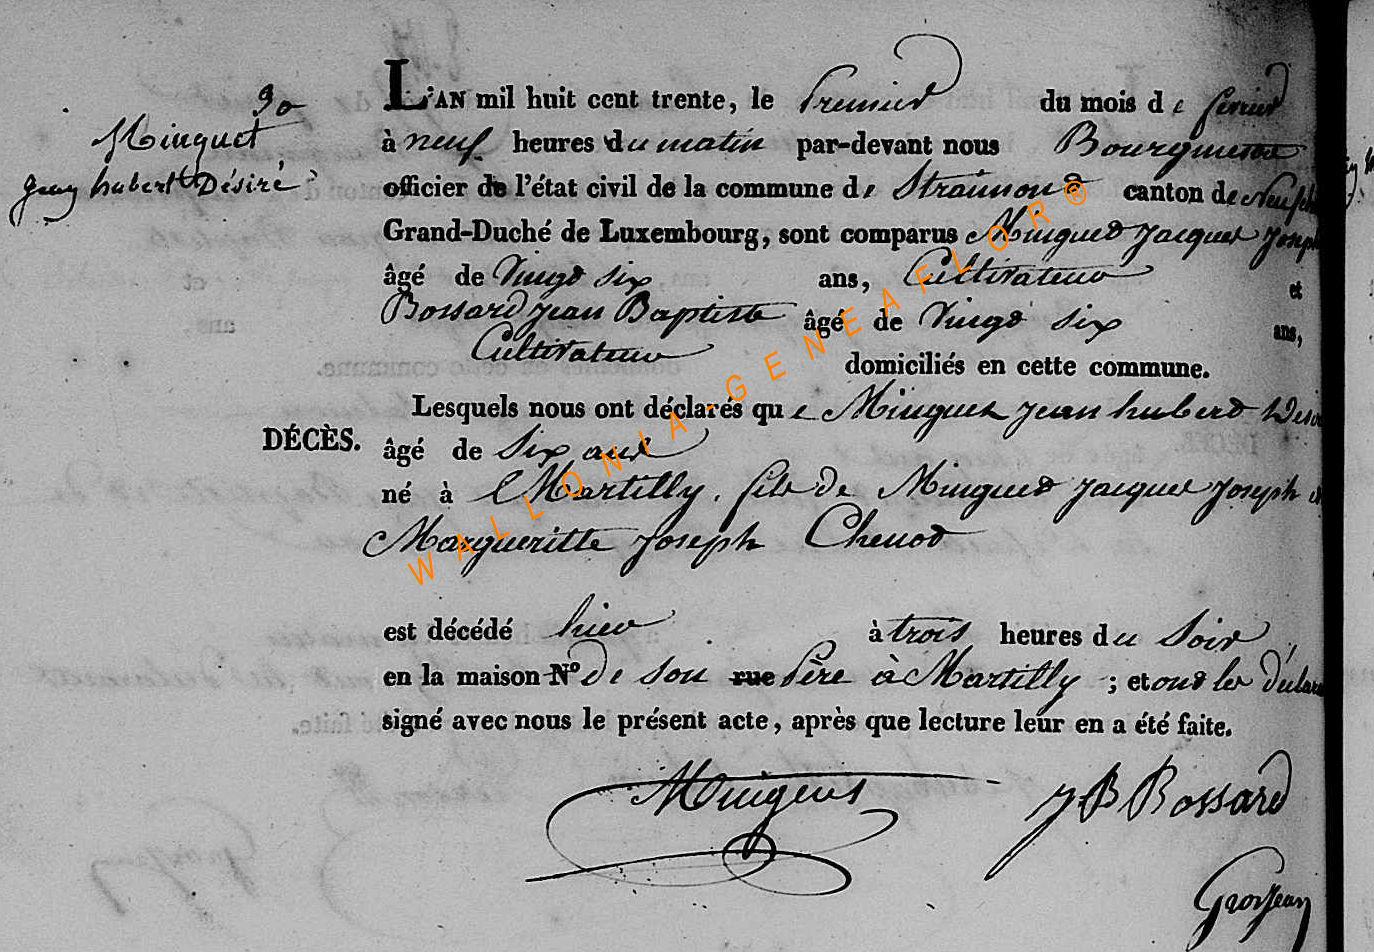 9o
Minquet
Jean hubert Désiré
L'AN mil huit cent trente, le Premier du mois de fevrier
à neuf heures du matin par-devant nous
officier de l'état civil de la commune de Straimont canton de Neufch
Grand-Duché de Luxembourg, sont comparus Minguet Jacques Joseph
âgé de Vingt six ans, Cultivateur et
Bossard Jean Baptiste âgé de Vingt six ans,
Cultivateur domiciliés en cette commune.
Lesquels nous ont déclarés que Minguet Jean hubert Desir
DÉCÈS.
âgé de Six ans
né à Martilly, fils de Minguet Jacques Joseph et
Margueritte Joseph Chenot
est décédé hier à trois heures du Soir
en la maison N° de son rue Père à Martilly ; et ont les déclara
signé avec nous le présent acte, après que lecture leur en a été faite.
JB Bossard
Grosjean
WALLONIA-GENEAFLOR®